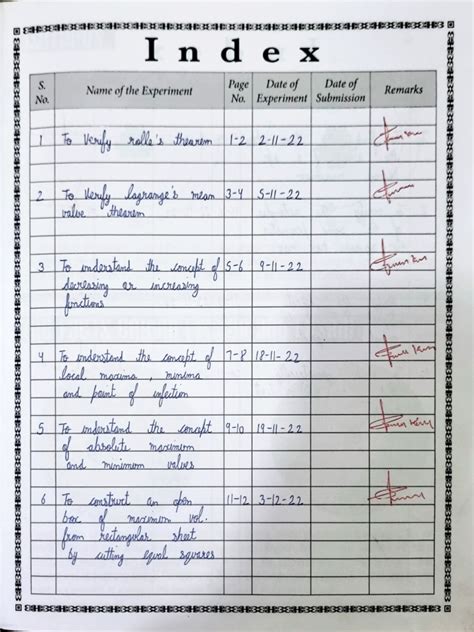 Index
S. No.
Name of the Experiment
Page No.
Date of Experiment
Date of Submission
Remarks
1 To Verify rolle's thearem 1-2 2-11-22
2 To Verify lagrange's mean 3-4 5-11-22
value thearem
3 To understand the concept of 5-6 9-11-22
decreasing or increasing
functions
4 To understand the concept of 7-8 18-11-22
local maxima, minima
and point of infection
5 To understand the concept 9-10 19-11-22
of absolute maximum
and minimum values
6 To construct an open 11-12 3-12-22
box of maximum vol.
from rectangular sheet
by cutting equal squares